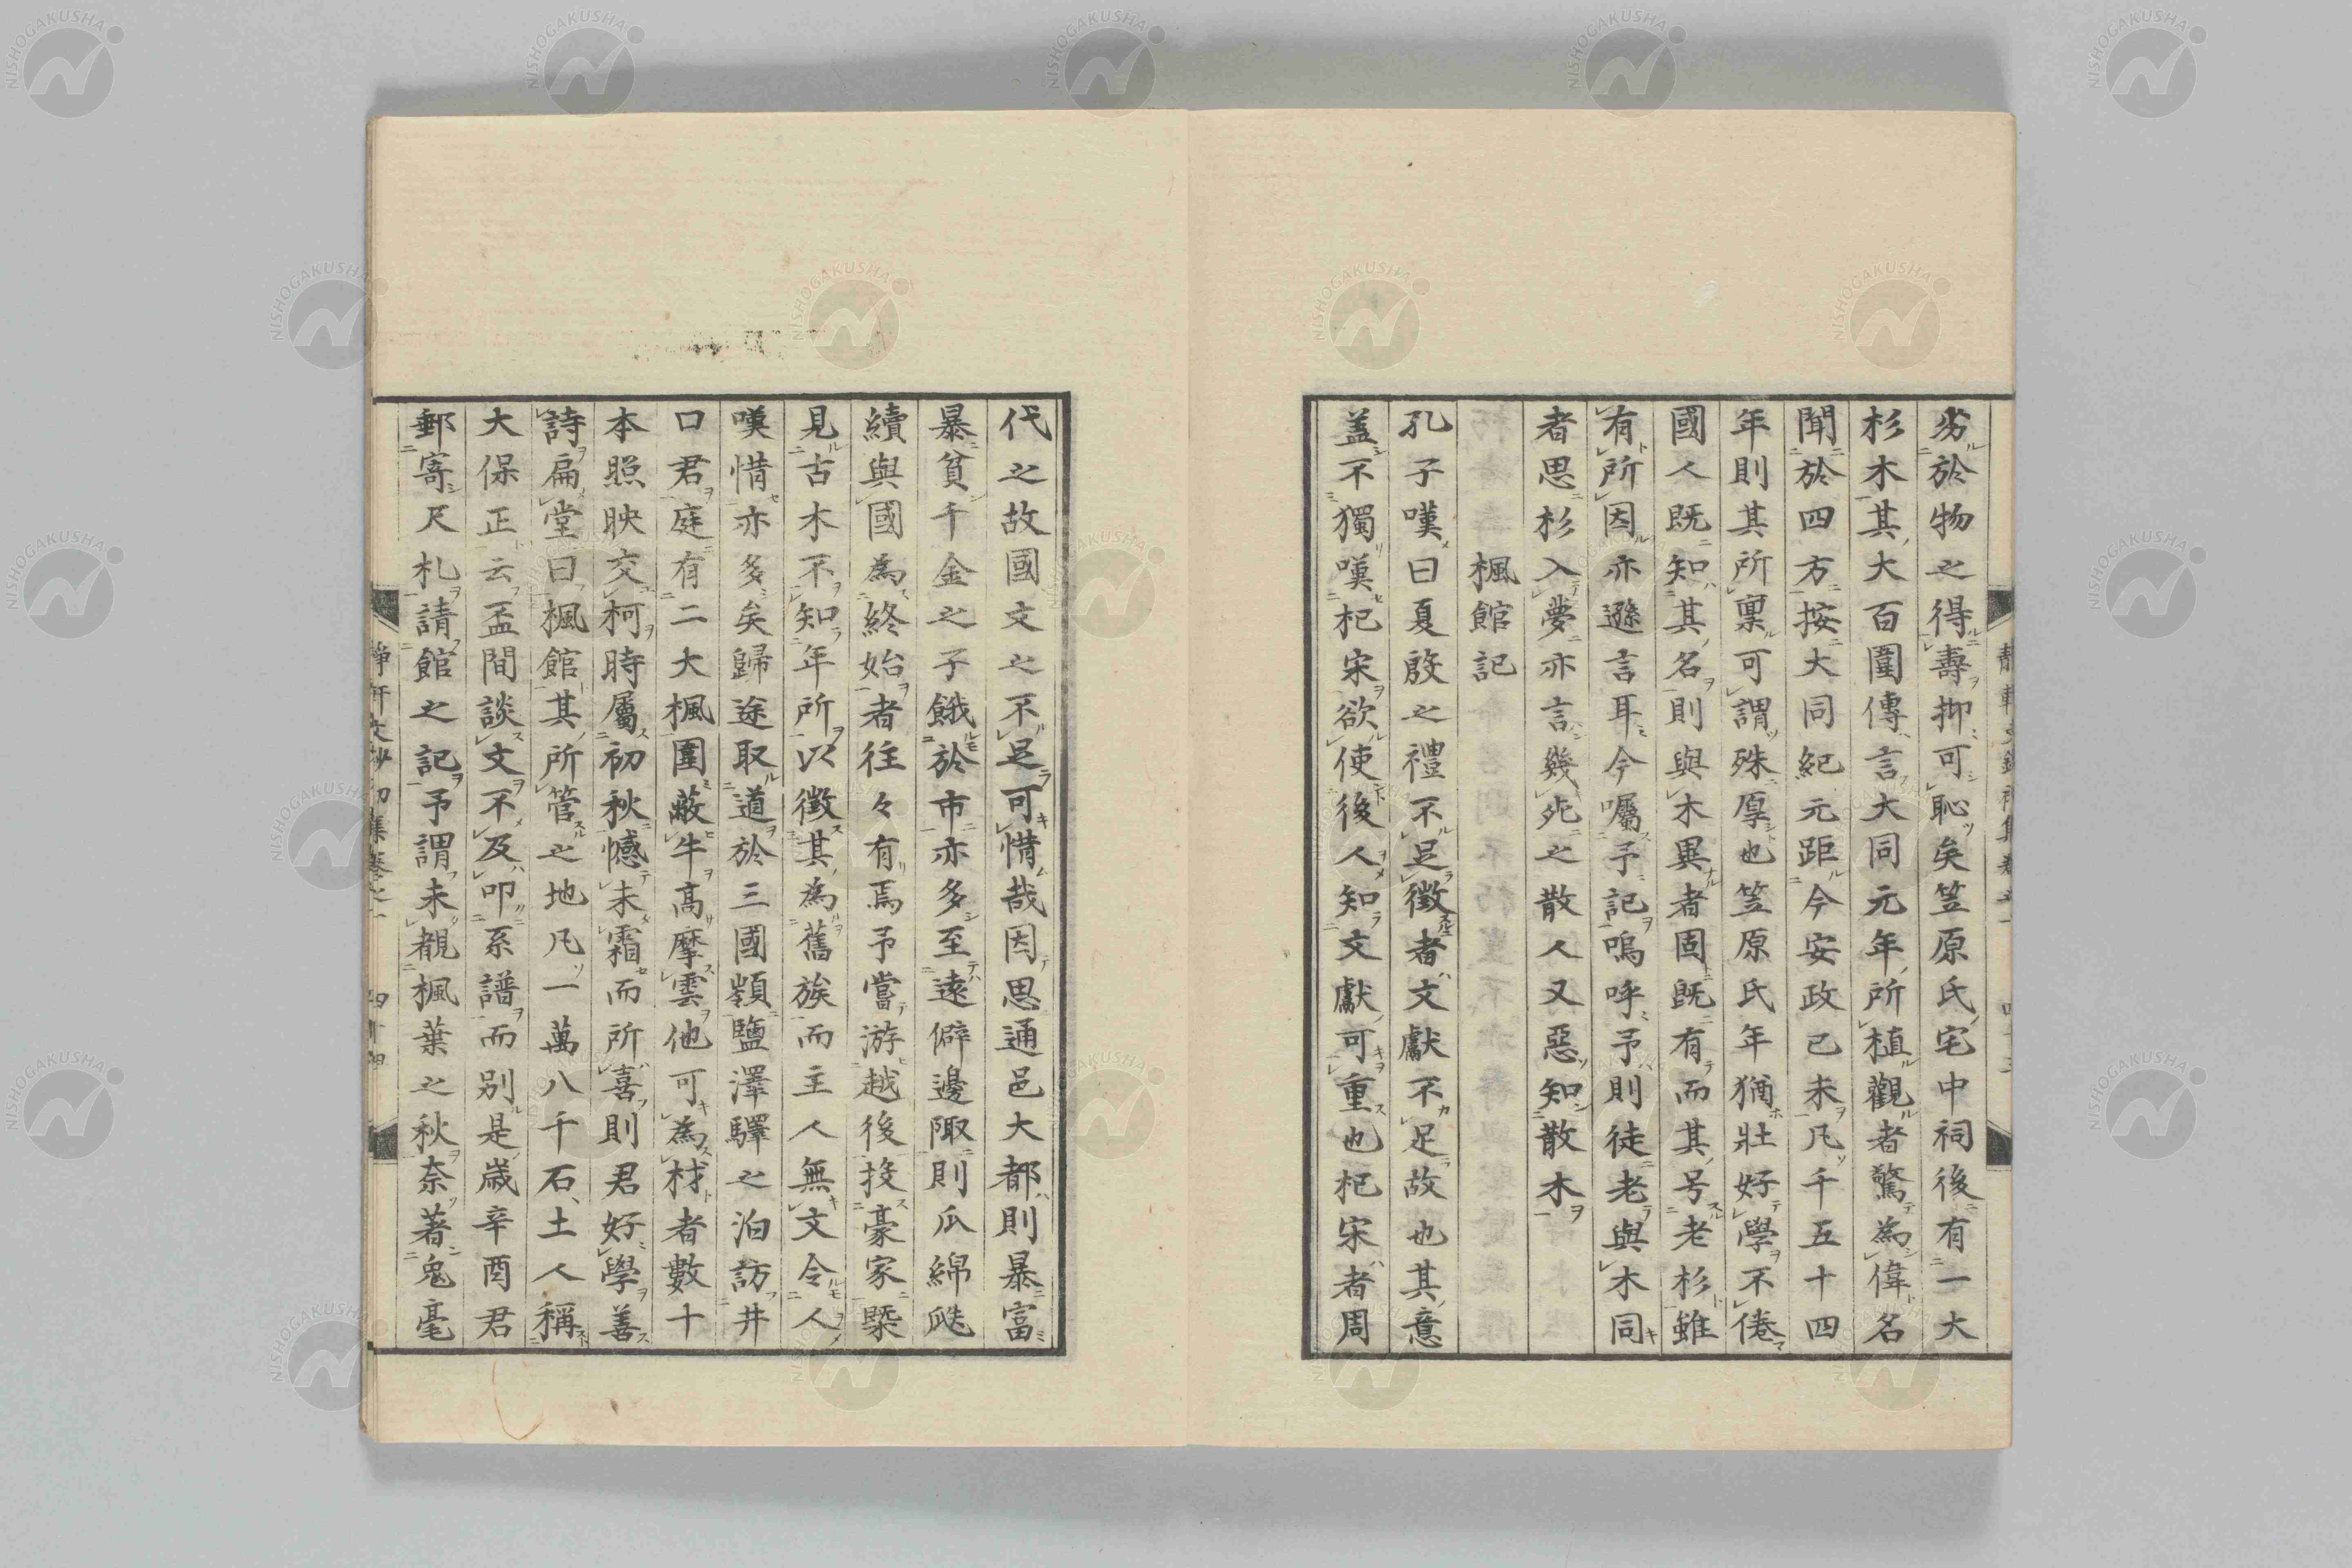 劣於物之得壽抑可恥矣笠原氏宅中祠後有一大
杉木其大百圍傳言大同元年所植觀者驚為偉名
聞於四方按大同紀元距今安政己未凡千五十四
年則其所稟可謂殊厚也笠原氏年猶壯好學不倦
國人既知其名則與木異者固既有而其号老杉雖
有所因亦遜言耳今囑予記嗚呼予則徒老與木同
者思杉入夢亦言幾死之散人又惡知散木
楓館記
孔子嘆曰夏殷之禮不足徵者文獻不足故也其意
蓋不獨嘆杞宋欲使後人知文獻可重也杞宋者周
代之故國文之不足可惜哉因思通邑大都則暴富
暴貧千金之子餓於市亦多至遠僻邊陬則瓜綿瓞
續與國為終始者往々有焉予嘗游越後投豪家槩
見古木不知年所以徵其為舊族而主人無文令人
嘆惜亦多矣歸途取道於三國嶺鹽澤驛之泊訪井
口君庭有二大楓圍蔽牛高摩雲他可為材者數十
本照映交柯時屬初秋憾未霜而所喜則君好學善
詩扁堂曰楓館其所管之地凡一萬八千石土人稱
大保正云盃間談文不及叩系譜而別是歲辛酉君
郵寄尺札請館之記予謂未覩楓葉之秋奈著兔毫
NISHOGAKUSHA